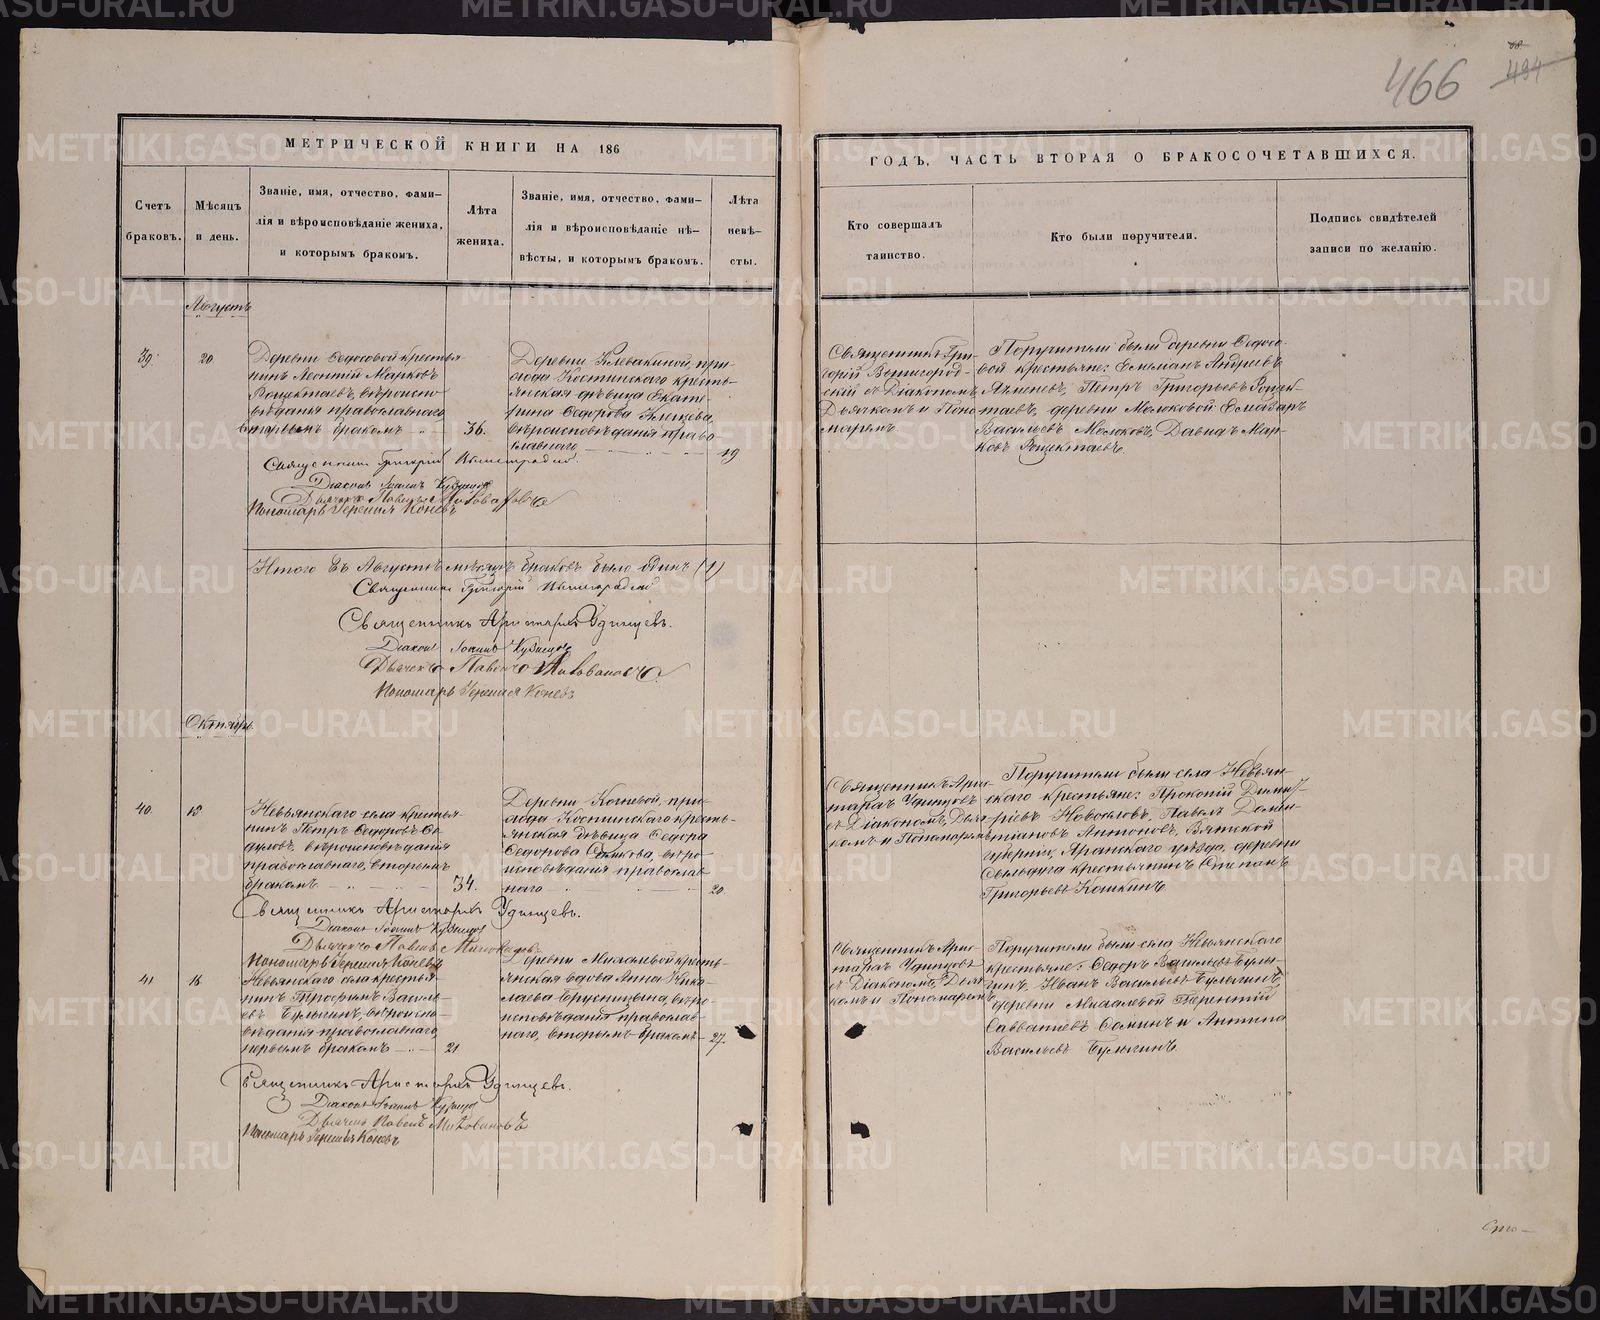 466
494
МЕТРИЧЕСКОЙ КНИГИ НА 186
ГОДЪ, ЧАСТЬ ВТОРАЯ О БРАКОСОЧЕТАВШИХСЯ.
Счетъ
браковъ.
Мѣсяцъ
и день.
Званіе, имя, отчество, фами-
лія и вѣроисповѣданіе жениха,
и которымъ бракомъ.
Лѣта
жениха.
Званіе, имя, отчество, фами-
лія и вѣроисповѣданіе не-
вѣсты, и которымъ бракомъ.
Лѣта
невѣ-
сты.
Кто совершалъ
таинство.
Кто были поручители.
Подпись свидѣтелей
записи по желанію.
Августъ
39.
20.
Деревни Ѳедосовой крестья-
нинъ Леонтій Марковъ
Рощектаевъ, вѣроиспо
вѣданія православнаго
вторымъ бракомъ
36.
Деревни Клевакиной, при-
хода Костинскаго кресть-
янская дѣвица Екате-
рина Ѳедорова Клещева,
вѣроисповѣданія право
славнаго
19
Священникъ Гри-
горій Вышегород-
скій съ Діакономъ,
Дьячкомъ и Поно
маремъ.
Поручители были деревни Ѳедосо-
вой крестьяне: Емельянъ Андреевъ
Ялменевъ, Петръ Григорьевъ Рощек-
таевъ, деревни Молоковой Елеазаръ
Васильевъ Молоковъ, Давидъ Мар-
ковъ Рощектаевъ.
Священникъ Григорій
Діаконъ Іоаннъ Кузнецовъ
Дьячекъ Павелъ Миловановъ
Пономарь Іеремія Коневъ
Итого въ Августѣ мѣсяцѣ браковъ было одинъ (1)
Священникъ Григорій
Священникъ Аристархъ Удинцевъ.
Діаконъ Іоаннъ Кузнецовъ
Дьячекъ Павелъ Миловановъ
Пономарь Іеремія Коневъ
Октябрь.
40.
18.
Невьянскаго села крестья-
нинъ Петръ Ѳедоровъ
вѣроисповѣданія
православнаго, вторымъ
бракомъ
34.
Деревни Коневой, при-
хода Костинскаго кресть-
янская дѣвица Ѳедора
Ѳедорова вѣро-
исповѣданія православ-
наго
20.
Священникъ Арис-
тархъ Удинцовъ
съ Діакономъ, Дьяч-
комъ и Пономаремъ
Поручители были села Невьян-
скаго крестьяне: Прокопій Дими-
ріевъ Новоселовъ, Павелъ
Антоновъ, Вятской
губерніи, Яранскаго уѣзда, деревни
крестьянинъ Степанъ
Григорьевъ Кошкинъ.
Священникъ Аристархъ Удинцевъ.
Діаконъ Іоаннъ Кузнецовъ
Дьячекъ Павелъ Миловановъ
Пономарь Іеремія Коневъ
41
18
Невьянскаго села крестья-
нинъ Трофимъ Василь-
евъ Булыгинъ, вѣроиспо-
вѣданія православнаго,
первымъ бракомъ
21
Деревни Михалевой кресть-
янская вдова Анна Нико-
лаева Брусницына, вѣро-
исповѣданія православ-
наго, вторымъ бракомъ
27.
Священникъ Арис-
тархъ Удинцовъ
съ Діакономъ, Дьяч-
комъ и Пономаремъ
Поручители были села Невьянскаго
крестьяне: Ѳедоръ Васильевъ Булы-
гинъ, Иванъ Васильевъ Булыгинъ,
деревни Михалевой Терентій
Савватіевъ Соминъ и Антипа
Васильевъ Булыгинъ.
Священникъ Аристархъ Удинцевъ.
Діаконъ Іоаннъ Кузнецовъ
Дьячекъ Павелъ Миловановъ
Пономарь Іеремія Коневъ
METRIKI.GASO-URAL.RU